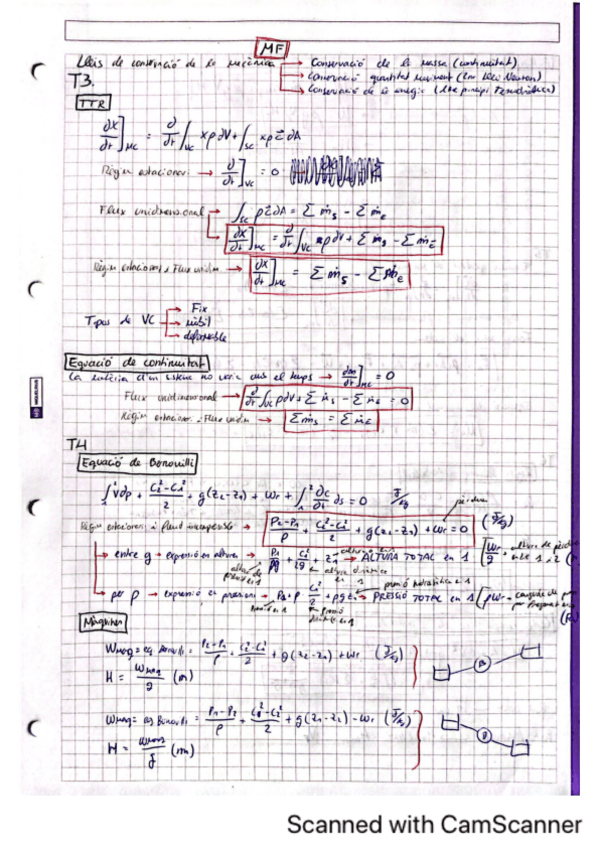 MF
Lleis de conservació de la mecànica → Conservació de la massa (continuitat)
→ Conservació quantitat moviment (2na Llei Newton)
→ Conservació de la energia (1er principi Termodinàmica)
T3.
TTR
dX/dt]MC = d/dt ∫VC xρdV + ∫SC xρc⃗dA
Règim estacionari → d/dt]VC = 0
Flux unidimensional → ∫SC ρc⃗dA = Σṁs - Σṁe
→ dX/dt]MC = d/dt ∫VC xρdV + Σṁs - Σṁe
Règim estacionari i Flux unidim. → dX/dt]MC = Σṁs - Σṁe
Tipus de VC → Fix
→ mòbil
→ deformable
Equació de continuitat
La matèria d'un sistema no varia amb el temps → dm/dt]MC = 0
Flux unidimensional → d/dt ∫VC ρdV + Σṁs - Σṁe = 0
Règim estacionari i Flux unidim → Σṁs = Σṁe
T4
Equació de Bernoulli
∫₁² Vdp + (c₂²-c₁²)/2 + g(z₂-z₁) + Wr + ∫₁² ∂c/∂t ds = 0 J/kg
pèrdues
Règim estacionari i fluid incompressible → (P₂-P₁)/ρ + (c₂²-c₁²)/2 + g(z₂-z₁) + Wr = 0 (J/kg)
→ entre g → expressió en altures → P₁/ρg + c₁²/2g + z₁ → ALTURA TOTAL en 1 [Wr/g = altura de pèrdues
altura de
altura dinàmica
en 1
→ per ρ → expressió en pressions → P₁ + ρ c₁²/2 + ρgz₁ → PRESSIÓ TOTAL en 1 [ρWr =
pressió hidrostàtica en 1
Pressió
dinàmica en 1
Màquines
Wmàq = eq. Bernoulli = (P₂-P₁)/ρ + (c₂²-c₁²)/2 + g(z₂-z₁) + Wr (J/kg)
H = Wmàq/g (m)
B
Wmàq = eq Bernoulli = (P₁-P₂)/ρ + (c₁²-c₂²)/2 + g(z₁-z₂) - Wr (J/kg)
H = Wmàq/g (m)
WUOLAH
Scanned with CamScanner